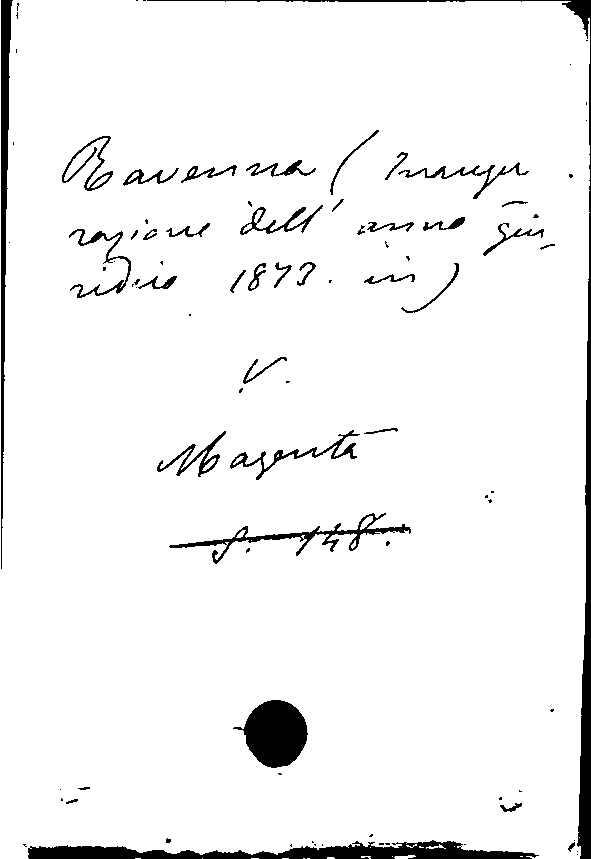 Ravenna (Inaugu
razione dell' anno giu-
ridico 1873. in)
V.
Magenta
S. 148.